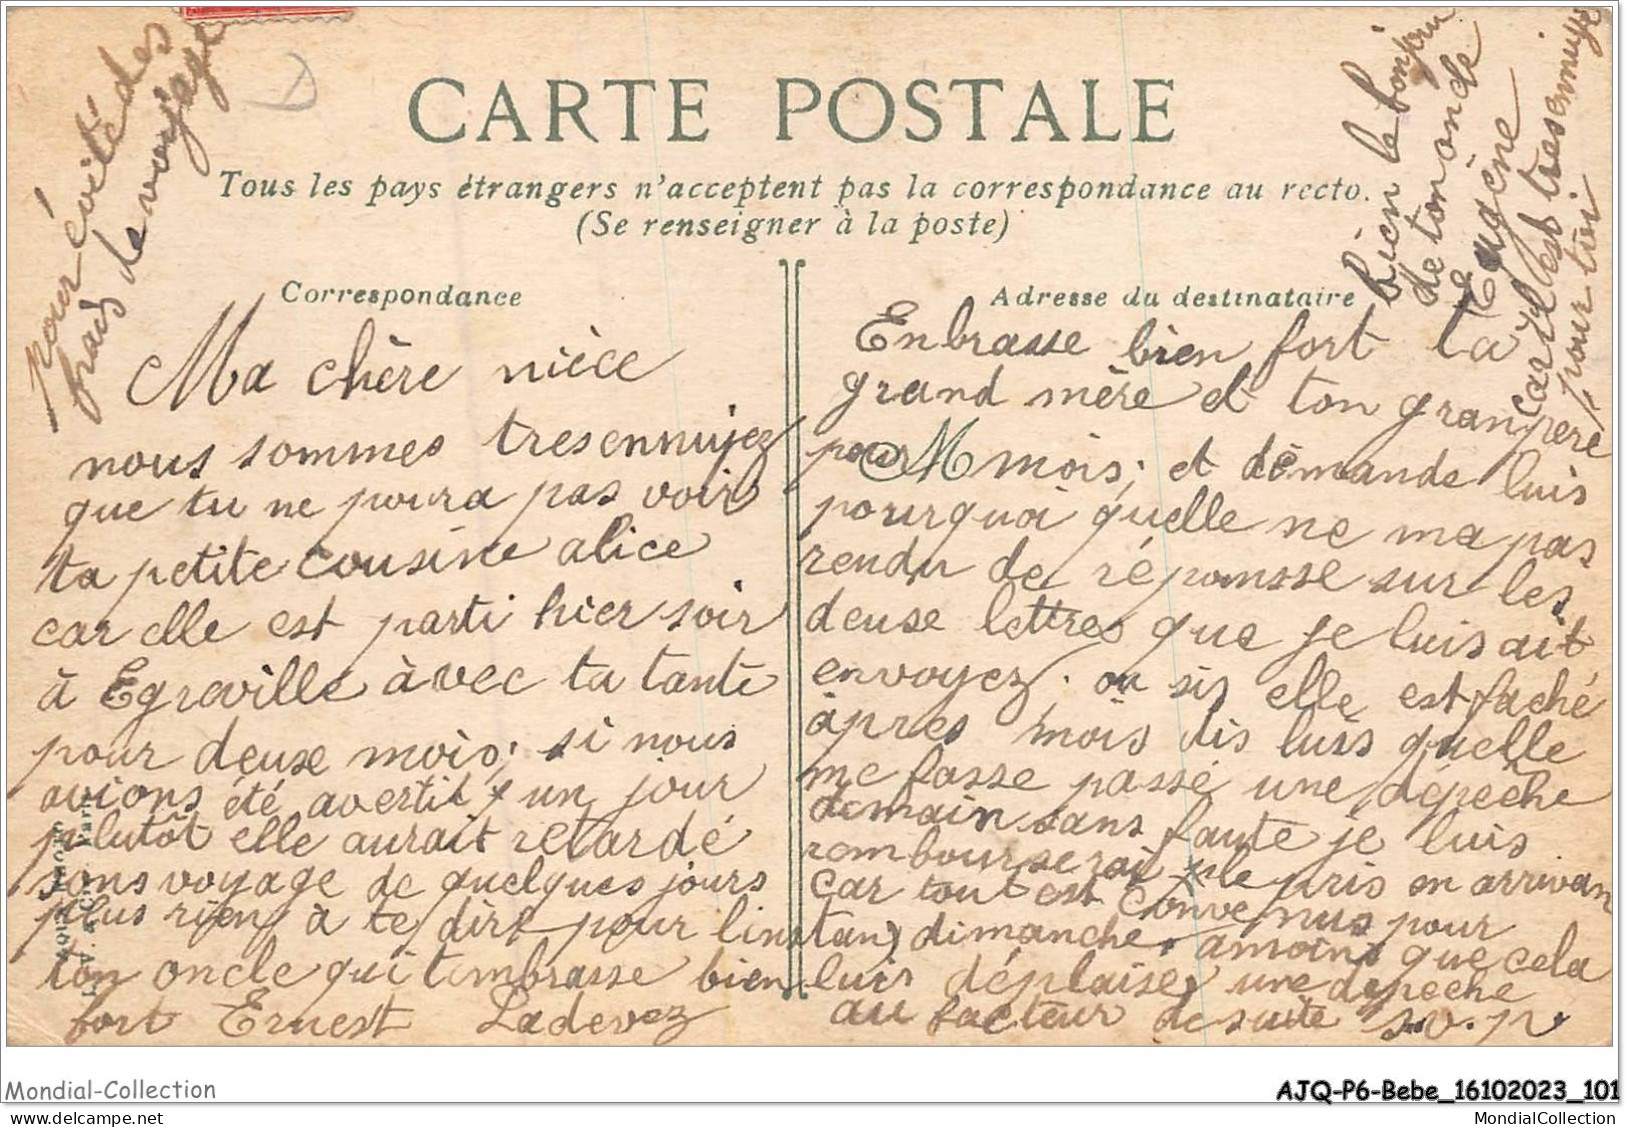 CARTE POSTALE
Tous les pays étrangers n'acceptent pas la correspondance au recto.
(Se renseigner à la poste)
Correspondance
Ma chère nièce
nous sommes tresennuyez
que tu ne poura pas voir
ta petite cousine alice
car elle est parti hier soir
à Egreville àvec ta tante
pour deuse mois; si nous
avions été avertit un jour
plutôt elle aurait retardé
sons voyage de quelques jours
plus rien à te dire pour linstant
ton oncle qui tembrasse bien
fort Ernest Ladevez
Adresse du destinataire
Enbrasse bien fort ta
grand mère et ton granpere
pour M mois; et démande luis
pourquoi quelle ne ma pas
rendu de réponsse sur les
deuse lettres que je luis ait
envoyez. ou sis elle est faché
âpres mois dis luis quelle
me fasse passé une dépèche
demain sans faute je luis
rembourserai le pris en arrivan
car tout est convenus pour
dimanche. amoins que cela
luis déplaise, une depeche
au facteur desuite s.v.p.
pour évité des
frais de voyage
bien le bonjour
de ton oncle
Eugène
car il est tresennuyé
pour toi
Mondial-Collection
AJQ-P6-Bebe_16102023_101
MondialCollection